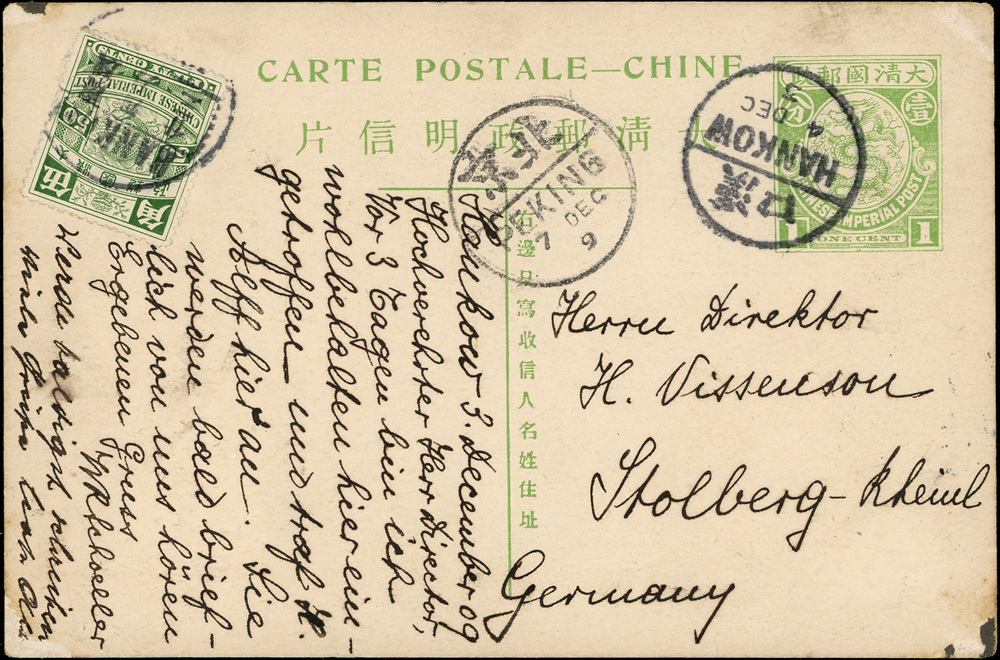 CARTE POSTALE—CHINE.
大清郵政明信片
右邊只寫收信人名姓住址
大清國郵政
壹
CHINESE IMPERIAL POST
1 ONE CENT 1
漢口
HANKOW
4 DEC
北京
PEKING
7 DEC
9
CHINESE IMPERIAL POST
伍
角
Herrn Direktor
H. Vissenson
Stolberg-Rheinl
Germany
Hankow 3. December 09
Hochverehrter Herr Director,
Vor 3 Tagen bin ich
wohlbehalten hier ein-
getroffen und traf H.
Alff hier an. Sie
werden bald brief-
lich von uns hören
Ergebenen Gruss
Werde baldigst schreiben